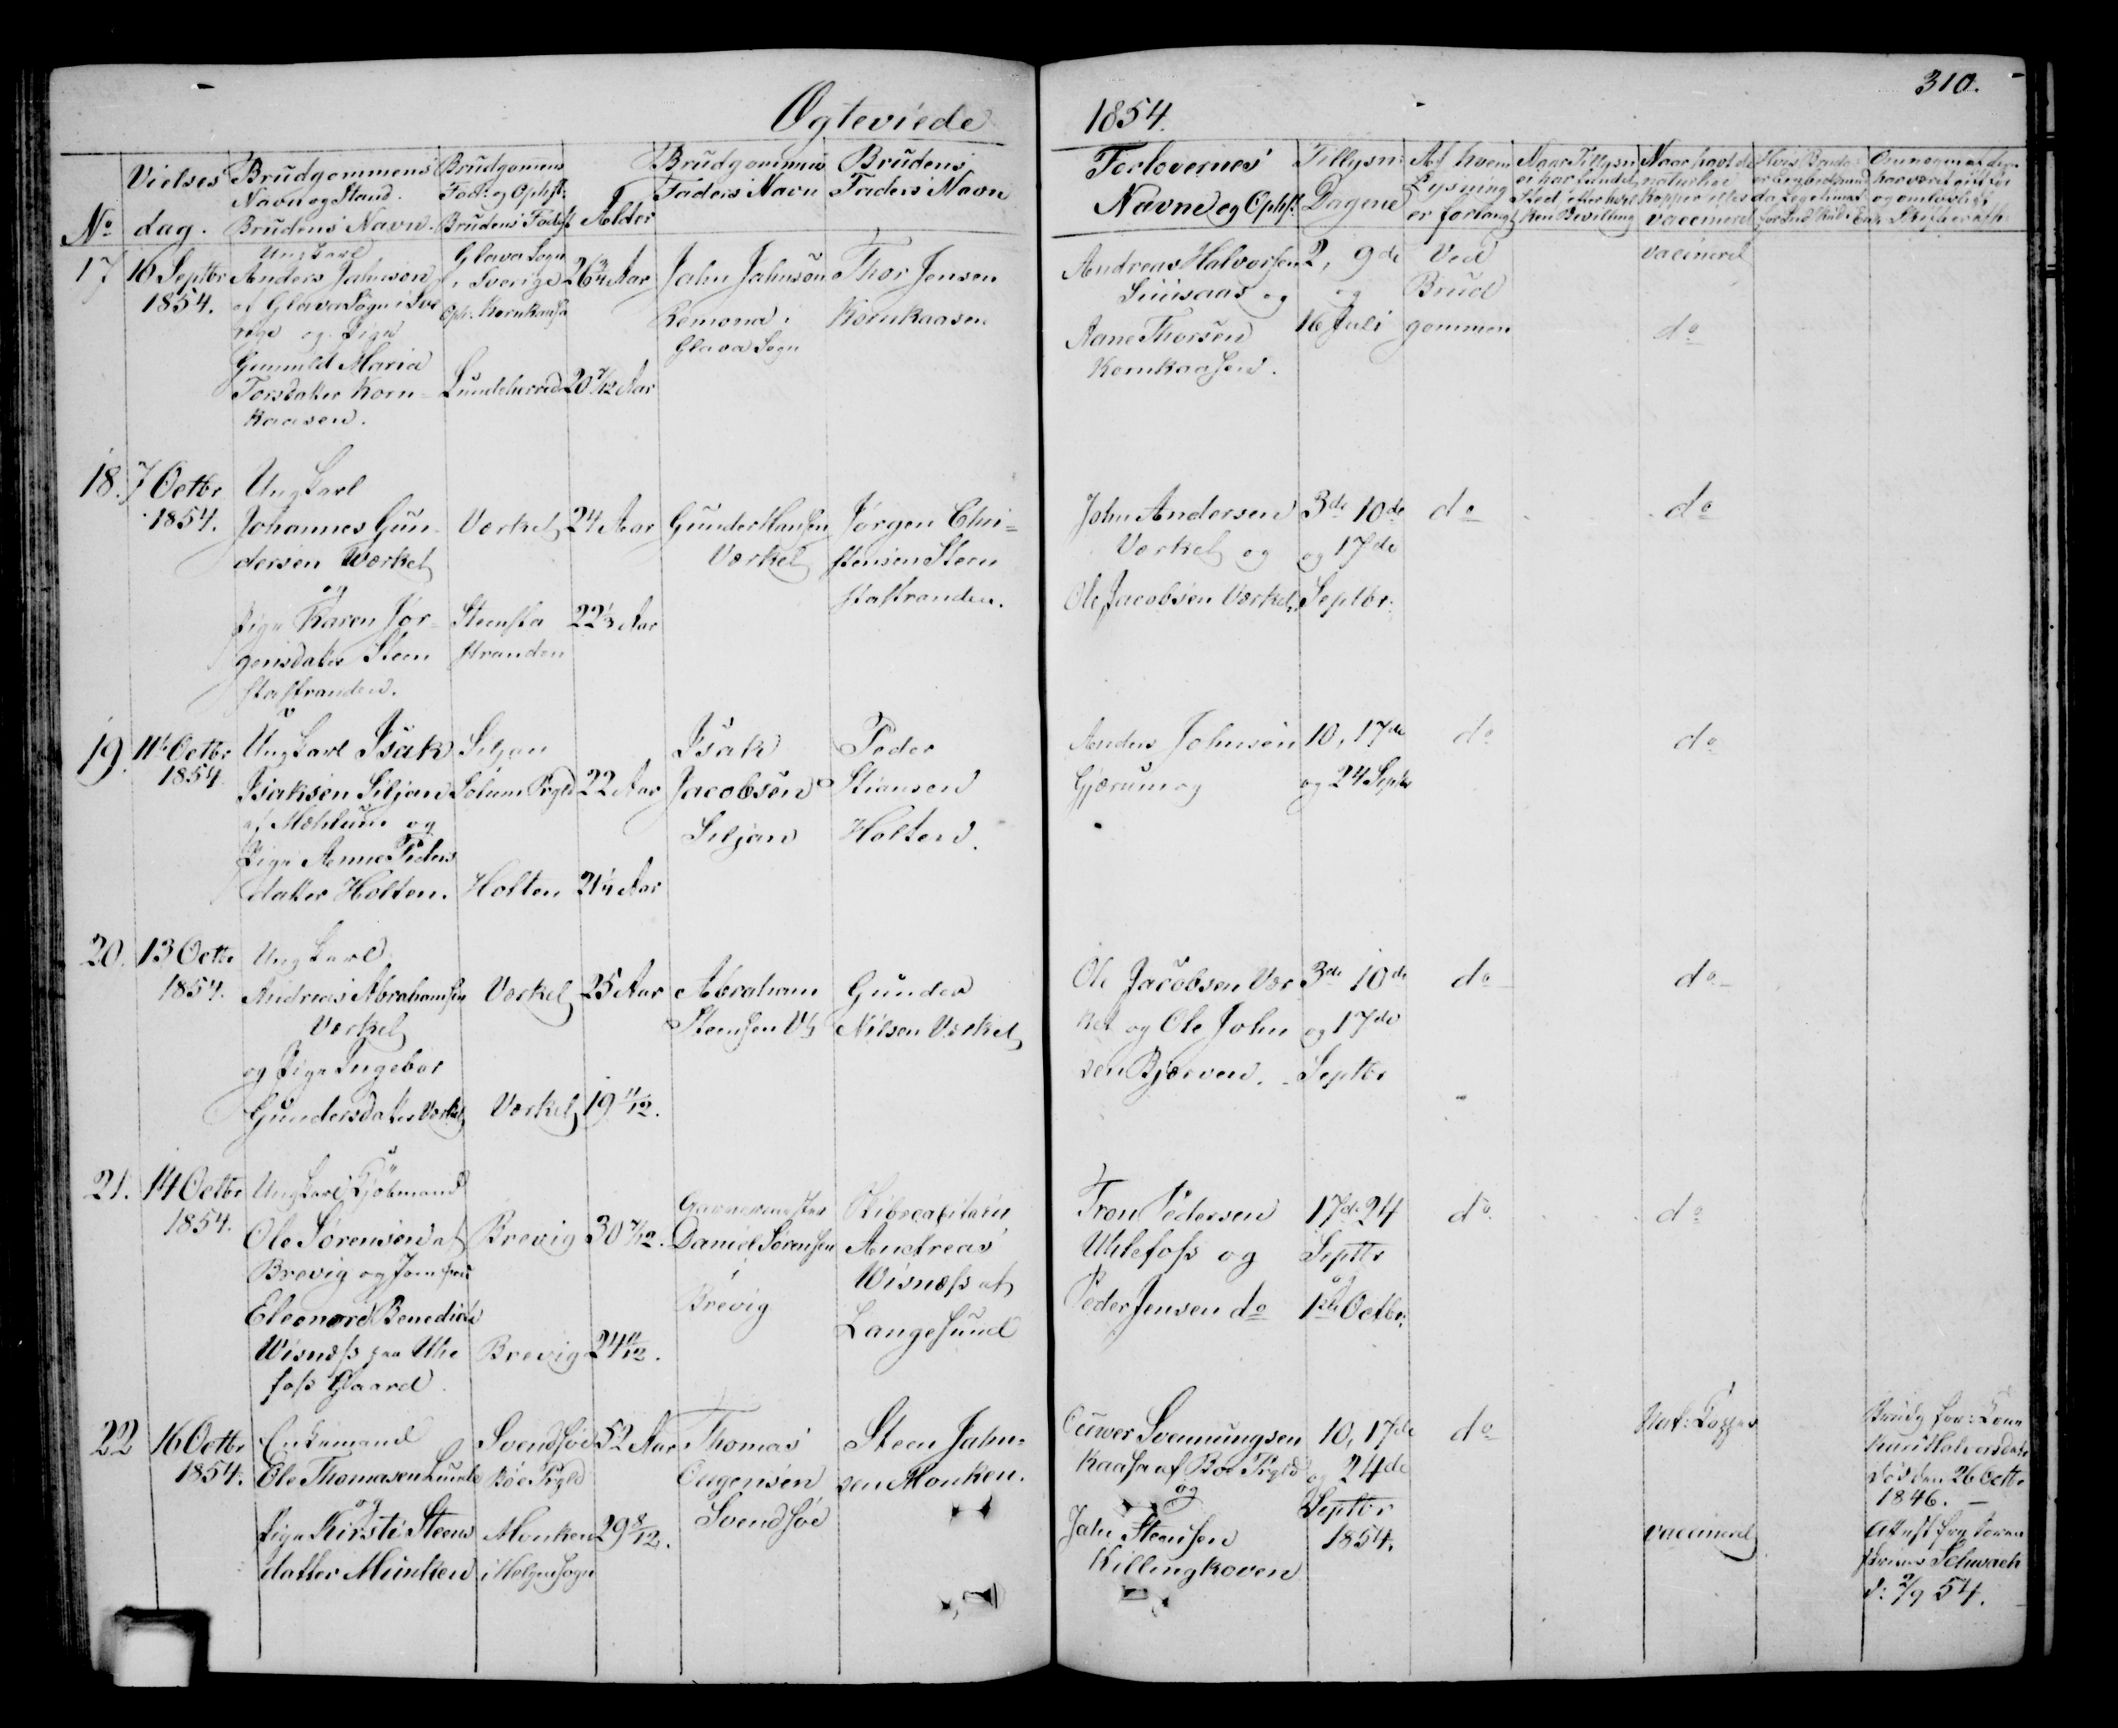 310.
Ogteviede
1854.
No
Vielses
dag.
Brudgommens
Navn og Stand.
Brudens Navn.
Brudgomens
Føde og Ophst.
Brudens Fødest
Alder
Brudgommens
Faders Navn
Brudens
Faders Navn
Forlovernes
Navne og Ophst.
Tillysn:
Dagene
Af hvem
Lysning
er forlangt
Naar Tillysn
er har fundet
Sted efter
Bevilling
Naar havt de
naturlige
Kopper eller
vaccineret
17
16 Septbr
1854.
Ungkarl
Anders Jahnsen
af Glava Sogn i Sve
rige og Pige
Gunnild Maria
Torsdatter Korn-
kaasen.
Glava Sogn
i Sverige
Oph. Kornkaasen
Lundeherred
26 3/4 Aar
20 7/12 Aar
Jahn Jahnson
Remona i
Glava Sogn
Thor Jensen
Kornkaasen
Andreas Halvorsen
og
Aane Thorsen
Kornkaasen.
2, 9de
og
16 Juli
Ved
Brud
gommen
vaccineret
do
18.
7 Octbr
1854.
Ungkarl
Johannes Gun-
dersen Værket
og
Pige Karen Jør-
gensdatter Steen
stastranden.
Værket
Steensta
stranden
24 Aar
22 1/3 Aar
Gunder Hansen
Værket
Jørgen Chri-
stensen Steen
stastranden.
John Andersen
Værket og
Ole Jacobsen Værket
3de 10de
og 17de
Septbr.
do
do
19.
11te Octbr
1854
Ungkarl Isak
Isaksen Siljan
af Mæhlum og
Pige Anne Peders
datter Holten.
Siljan
Solum Prgld
Holten
22 Aar
21 1/4 Aar
Isak
Jacobsen
Siljan
Peder
Stiansen
Holten.
Anders Johnsen
Gjærum og
10, 17de
og 24 Septbr
do
do
20.
13 Octbr
1854.
Ungkarl
Andreas Abrahamsen
Værket
og Pige Ingebor
Gundersdatter Værket
Værket
Værket
25 Aar
19 11/12.
Abraham
Steensen
Gunder
Nilsen Værket
Ole Jacobsen Vær
ket og Ole John
sen Bjerven.
3de 10de
og 17de
Septbr
do
do
21.
14 Octbr
1854.
Ungkarl Kjøbmand
Ole Sørensen af
Brevig og Jomfru
Eleonore Benedicte
Wisnæss paa Uhle
foss Gaard.
Brevig
Brevig
30 7/12.
24 11/12.
Garvermester
Daniel Sørensen
i
Brevig
Skibscapitain
Andreas
Wisnæss af
Langesund
Tron Pedersen
Uhlefoss og
Peder Jensen do
17de 24
Septbr
og
1ste Octbr.
do
do
22
16 Octbr
1854.
Enkemand
Ole Thomasen Lunde
og
Pige Kirsti Steens
datter Munken
Svendsøe
Bøe Prgld
Monken
i Helgen Sogn
52 Aar
29 8/12.
Thomas
Svendsøe
Steen Jahn-
sen Monken.
Ouver Svennungsen
Kaasa af Bøe Prgld
og
Jahn Steensen
Killingkoven
10, 17de
og 24de
Septbr
1854.
do
Nat: Kopper
vaccineret
Brudg for: Kone
Kari Halvorsdatter
død den 26 Octbr
1846.
Attest fra Soren
skriver Schwach
d: 2/9 54.